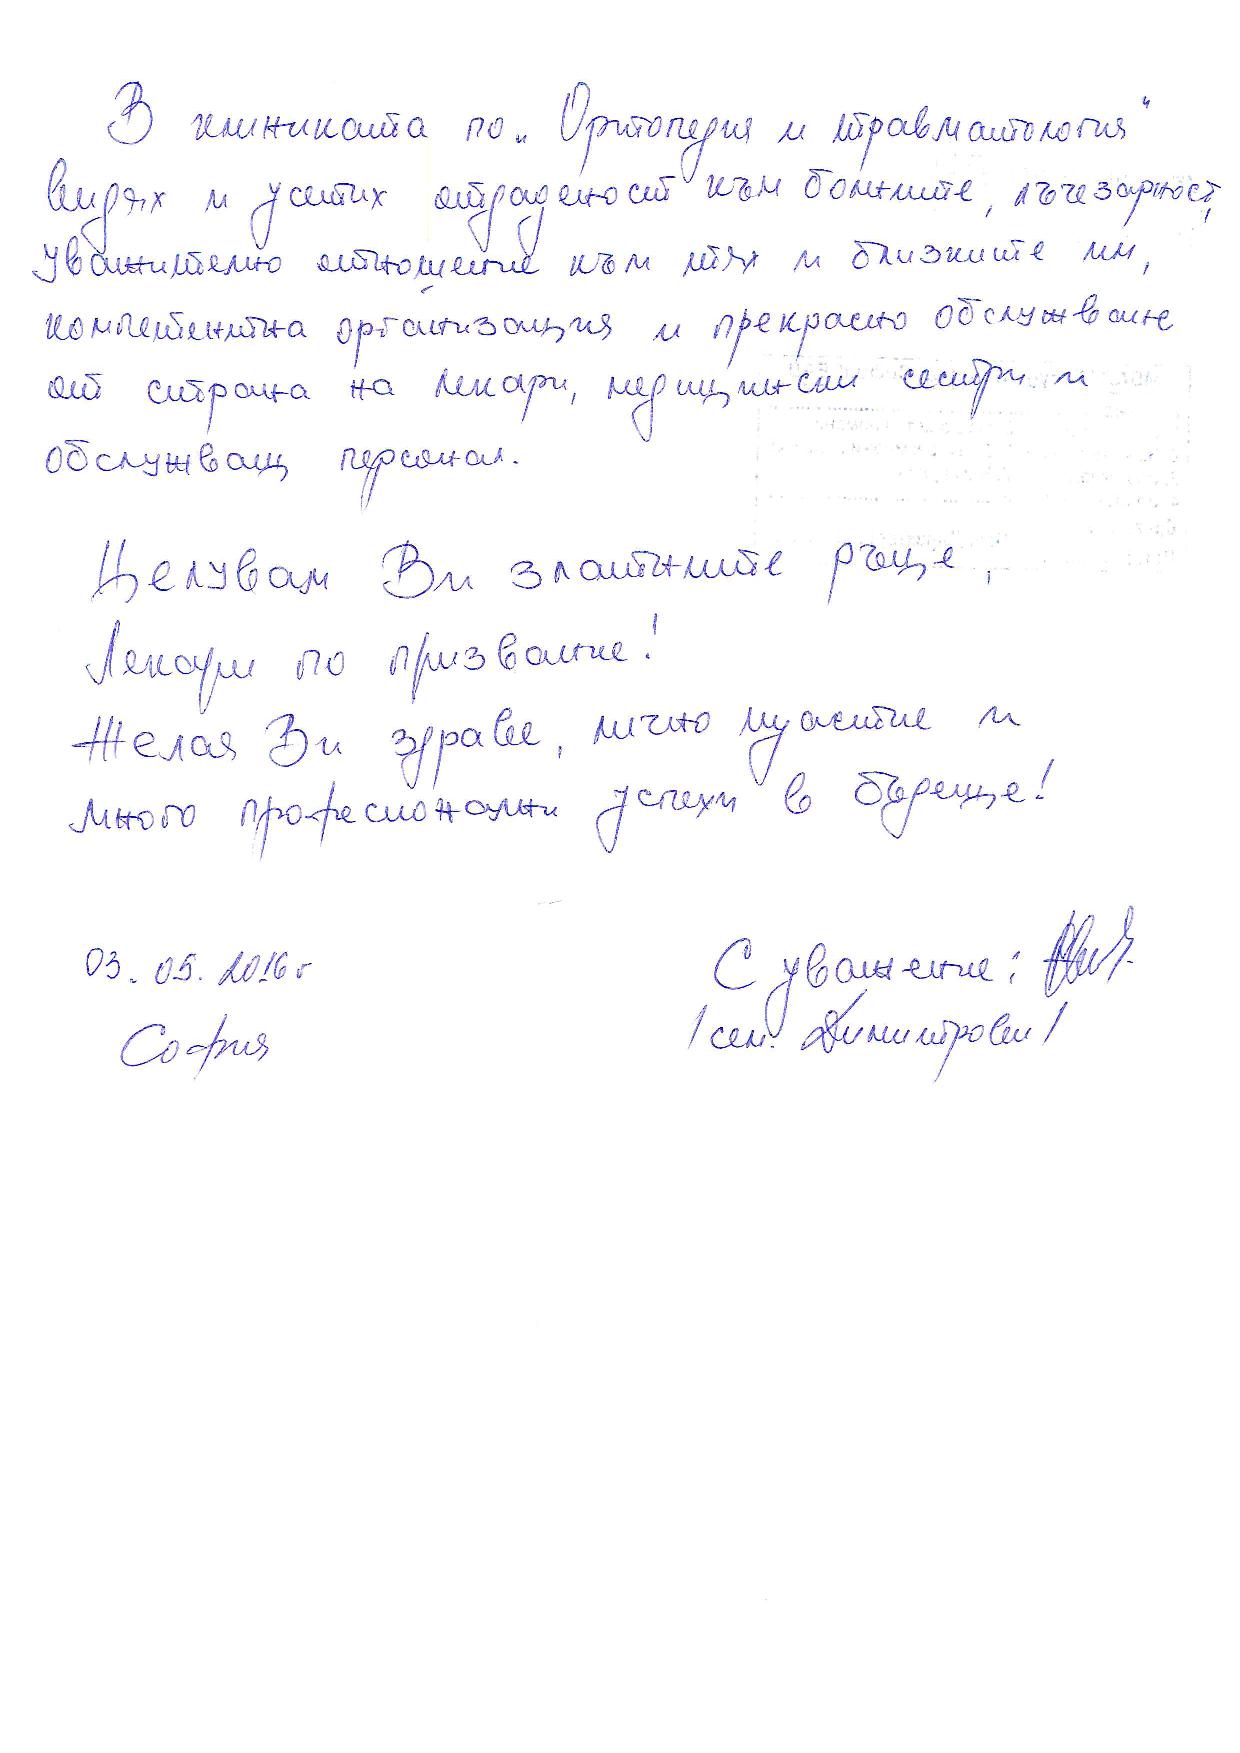 В клиниката по „Ортопедия и травматология"
видях и усетих отдаденост към болните, лъчезарност,
уважително отношение към тях и близките им,
компетентна организация и прекрасно обслужване
от страна на лекари, медицински сестри и
обслужващ персонал.
Целувам Ви златните ръце,
Лекари по призвание!
Желая Ви здраве, лично щастие и
много професионални успехи в бъдеще!
03.05.2016 г
София
С уважение:
/сем. Димитрови/